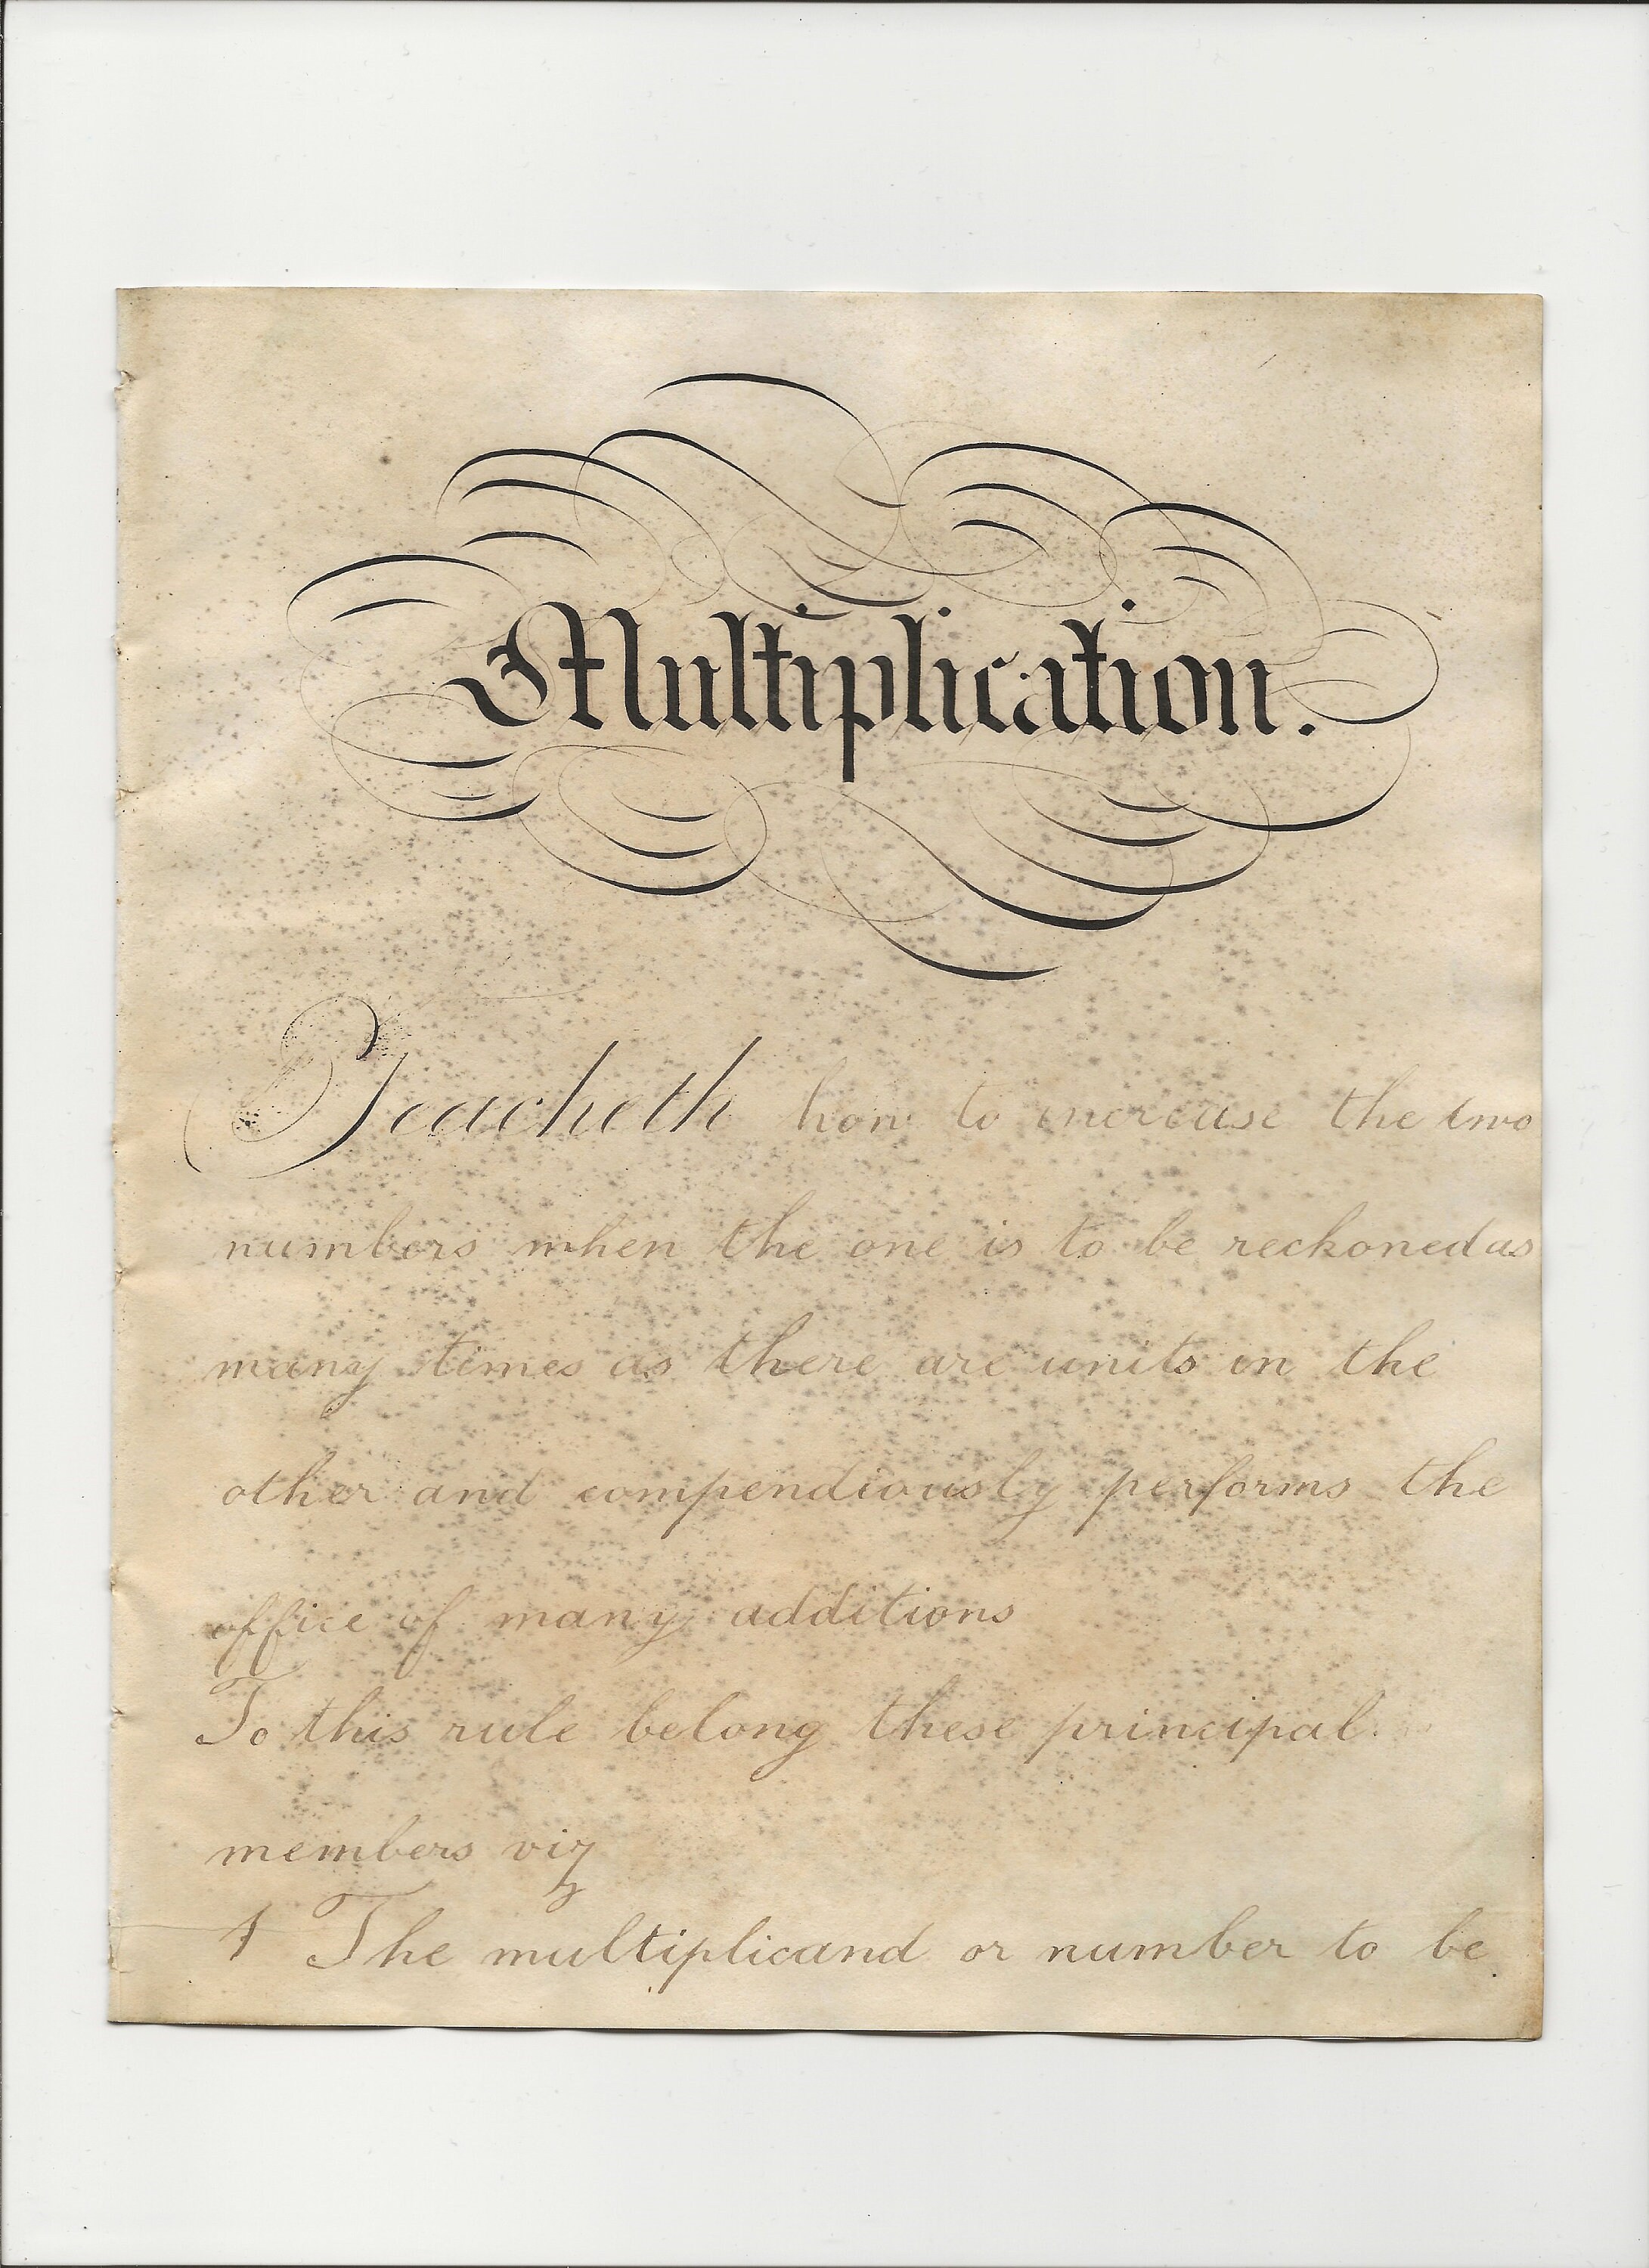 Multiplication.
Teacheth how to increase the two
numbers when the one is to be reckoned as
many times as there are units in the
other and compendiously performs the
office of many additions
To this rule belong these principal
members viz
1 The multiplicand or number to be